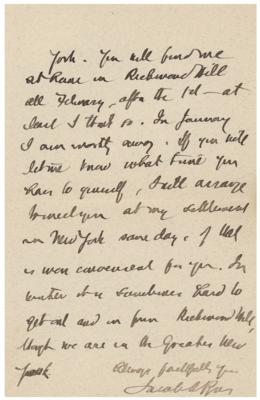 York. You will find me
at home in Richmond Hill
all February, after the 1st – at
least I think so. In January
I am mostly away. If you will
let me know what time you
have to yourself, I will arrange
to meet you at my settlement
in New York some day, if that
is more convenient for you. In
winter it is sometimes hard to
get out and in from Richmond Hill,
though we are in the Greater New
York.
Always faithfully yours
Jacob A Riis